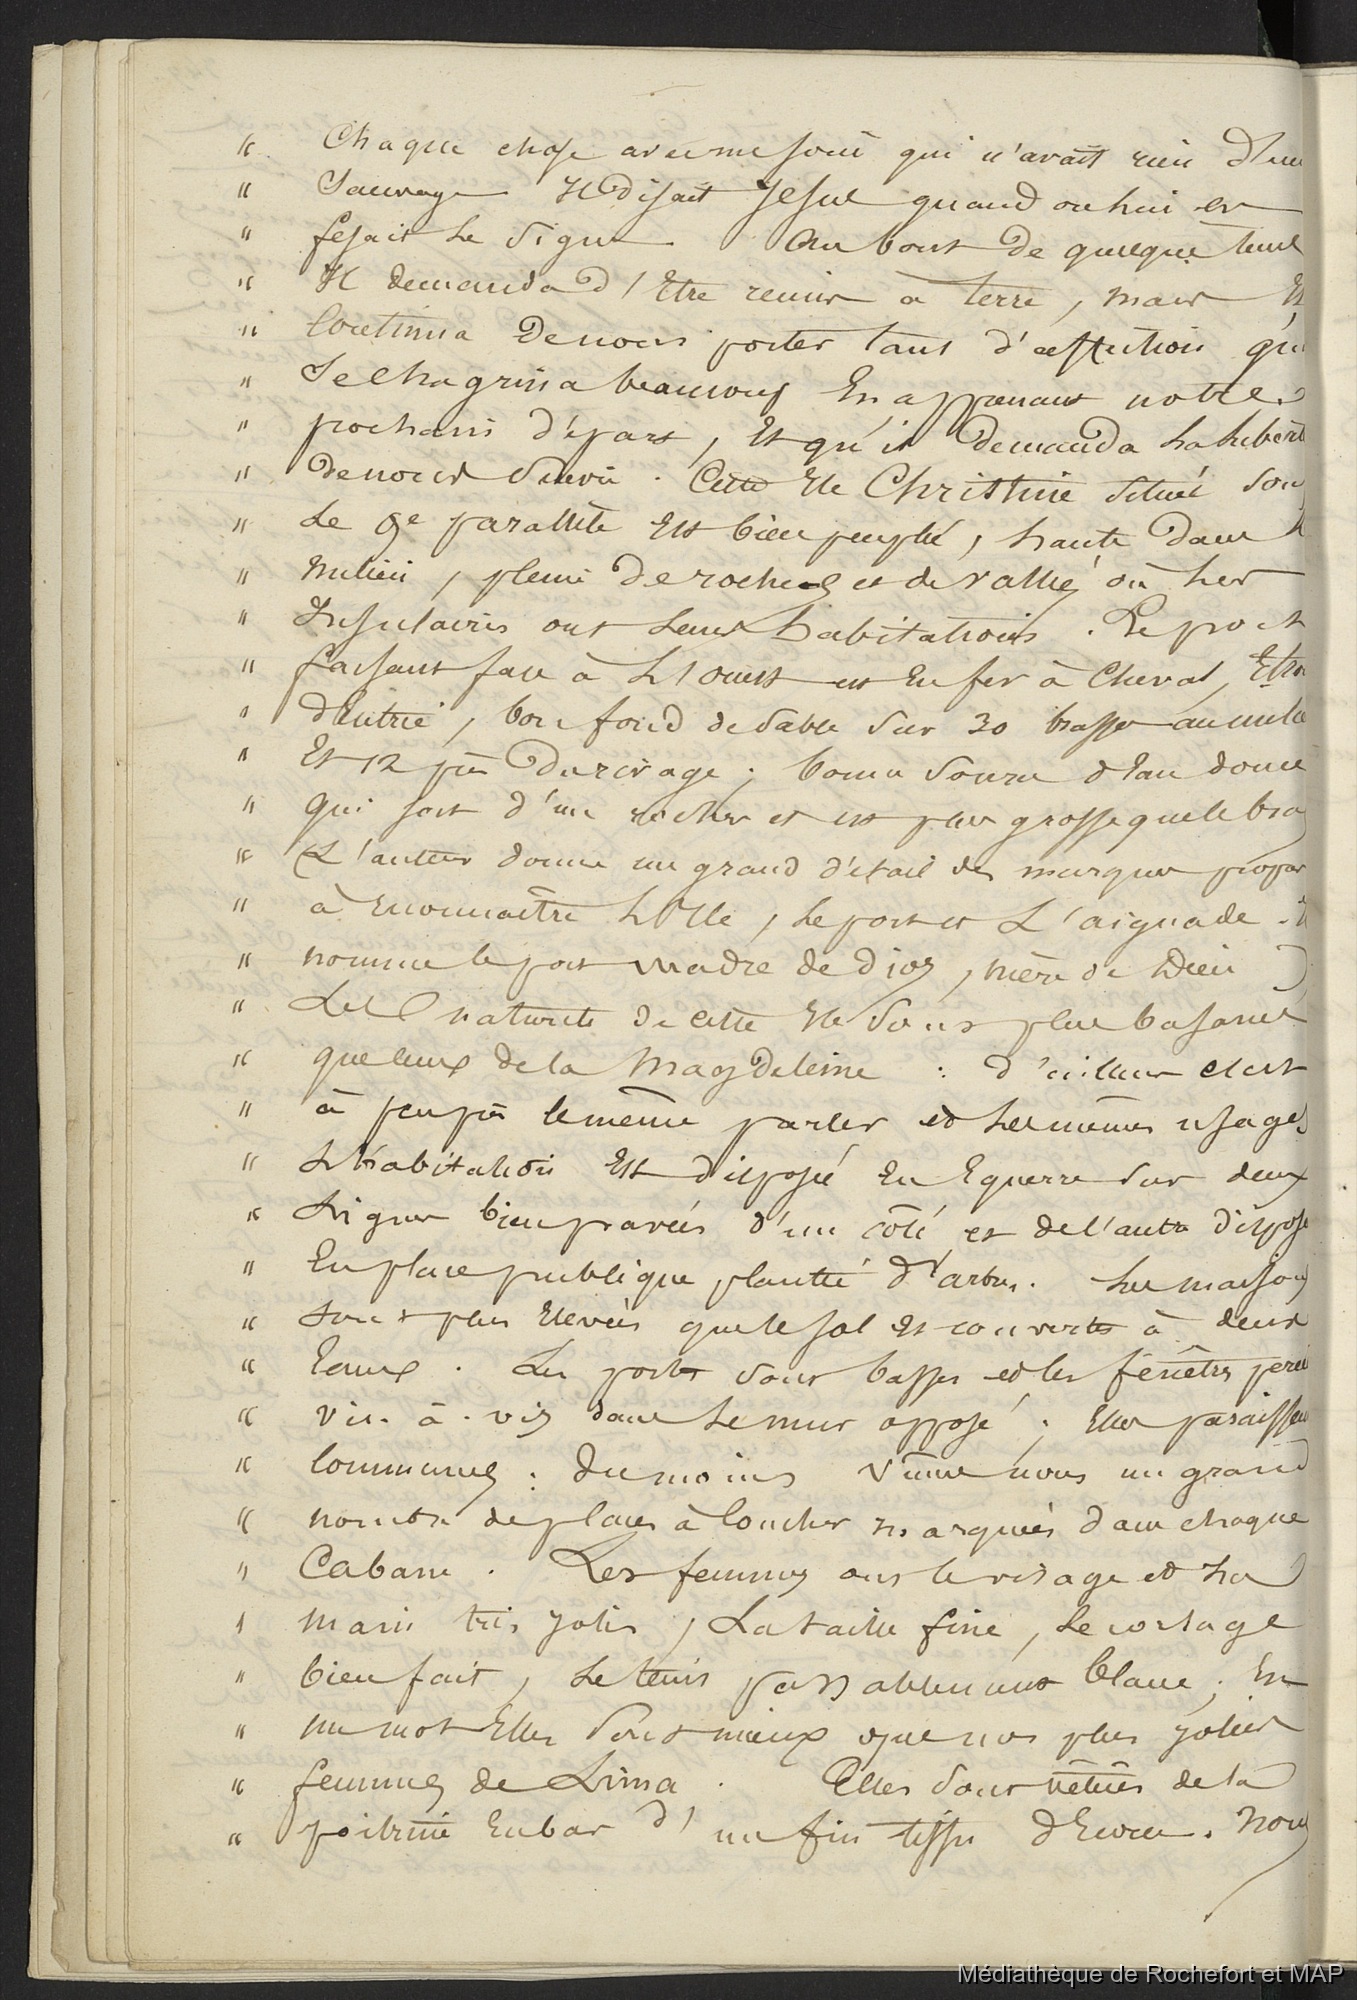 " Chaque chose avec un soin qui n'avait rien d'un
" Sauvage Il disait Jesus quand on lui en
" fesait le signe. Au bout de quelque tems
" Il demanda d'Etre remis à terre, mais Il
" Continua de nous porter tant d'affection qu'il
" Se chagrina beaucoup En apprenant notre
" prochain départ, Et qu'il demanda la liberté
" de nous suivre. Cette Ile Christine située sous
" Le 9e parallèle Est bien peuplée, haute dans le
" milieu, pleine de roches et de vallées où les
" Insulaires ont leurs habitations. Le port
" faisant face à L'ouest est En fer à Cheval, Etroit
" d'Entrée, bon fond de sable sur 30 brasses au milieu
" Et 12 près du rivage; bonne source d'Eau douce
" qui sort d'un rocher et est plus grosse que le bras
" (L'auteur donne un grand détail des marques propres
" à reconnaître L'Ile, le port et L'aiguade. Il
" nomme le port Madre de Dios, mère de Dieu)
" Les naturels de cette Ile sont plus basanés
" que ceux de la Magdeleine : d'ailleurs c'est
" à peu près le même parler et les mêmes usages
" L'habitation Est disposée En Equerre sur deux
" Lignes bien pavées d'un côté et de l'autre disposé
" En place publique plantée d'arbres. Les maisons
" sont plus Elevées que le sol et couvertes à deux
" Eaux. Les portes sont basses et les fenêtres percées
" vis-à-vis dans le mur opposé; Elles paraissent
" Communes : du moins vîmes nous un grand
" nombre de places à Coucher marquées dans chaque
" Cabane. Les femmes ont le visage et la
" main très jolis, La taille fine, le corsage
" bien fait, le teint passablement blanc; En
" un mot Elles sont mieux que nos plus jolies
" femmes de Lima. Elles sont vêtues de la
" poitrine En bas d'un fin tissu d'Ecorce. Nous
Médiathèque de Rochefort et MAP